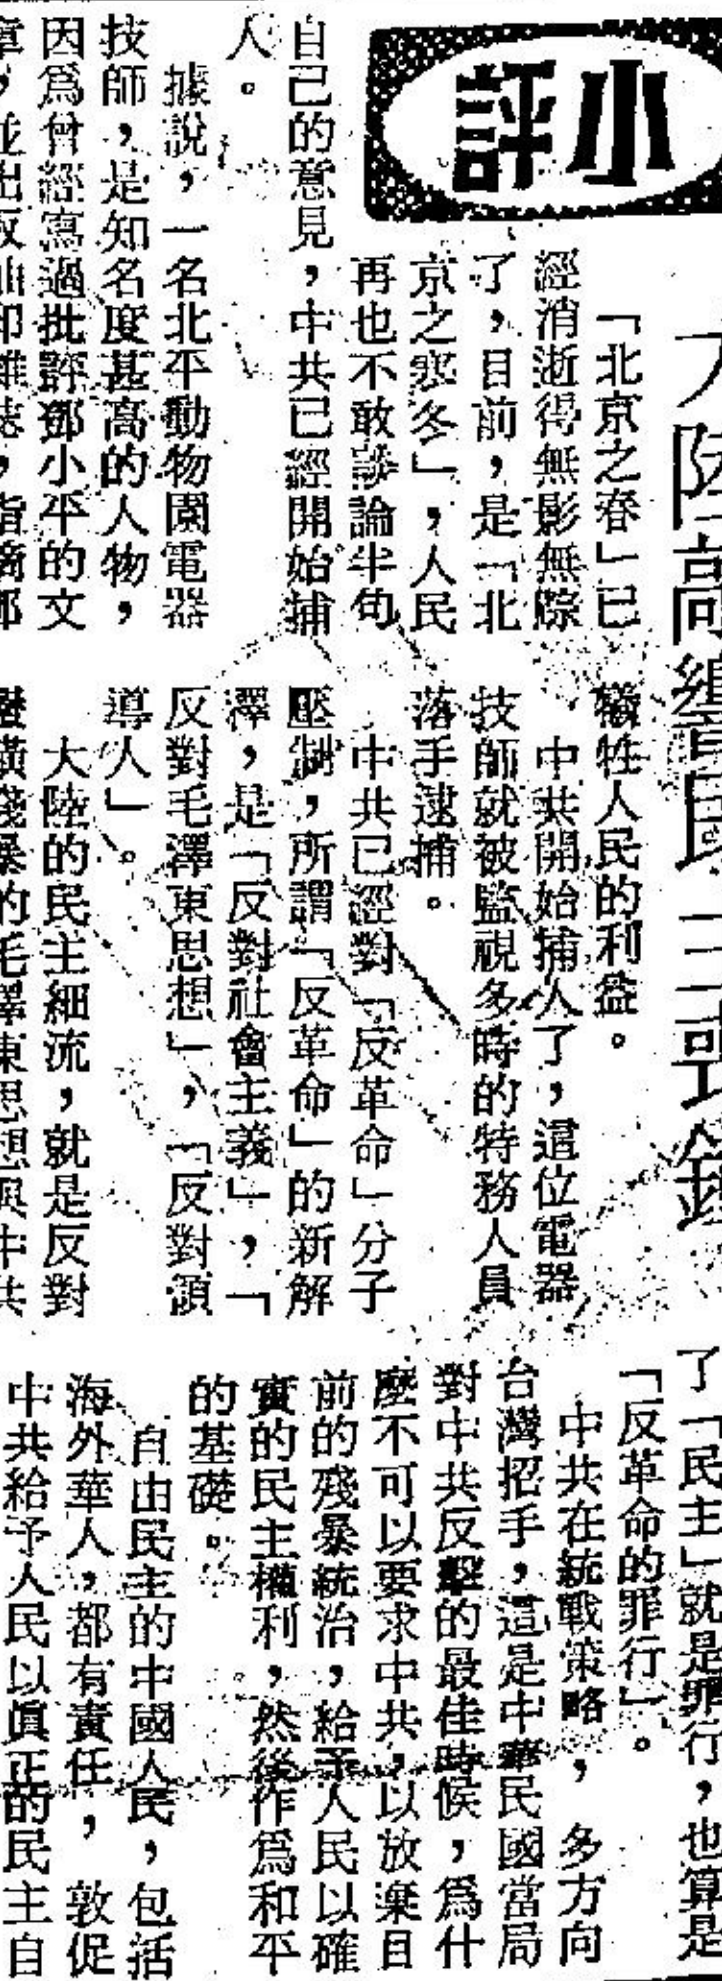 小評
大陸高響民主喪鐘
「北京之春」已
經消逝得無影無踪
了，目前，是「北
京之寒冬」，人民
再也不敢談論半句
自己的意見，中共已經開始捕
人。
據說，一名北平動物園電器
技師，是知名度甚高的人物，
因爲曾經寫過批評鄧小平的文
章，並出版油印雜誌，指摘鄧
犧牲人民的利益。
中共開始捕人了，這位電器
技師就被監視多時的特務人員
落手逮捕。
中共已經對「反革命」分子
壓制，所謂「反革命」的新解
釋，是「反對社會主義」，「
反對毛澤東思想」，「反對領
導人」。
大陸的民主細流，就是反對
蠻橫殘暴的毛澤東思想與中共
了「民主」就是罪行，也算是
「反革命的罪行」。
中共在統戰策略，多方向
台灣招手，這是中華民國當局
對中共反擊的最佳時候，爲什
麼不可以要求中共，以放棄目
前的殘暴統治，給予人民以確
實的民主權利，然後作爲和平
的基礎。
自由民主的中國人民，包括
海外華人，都有責任，敦促
中共給予人民以眞正的民主自